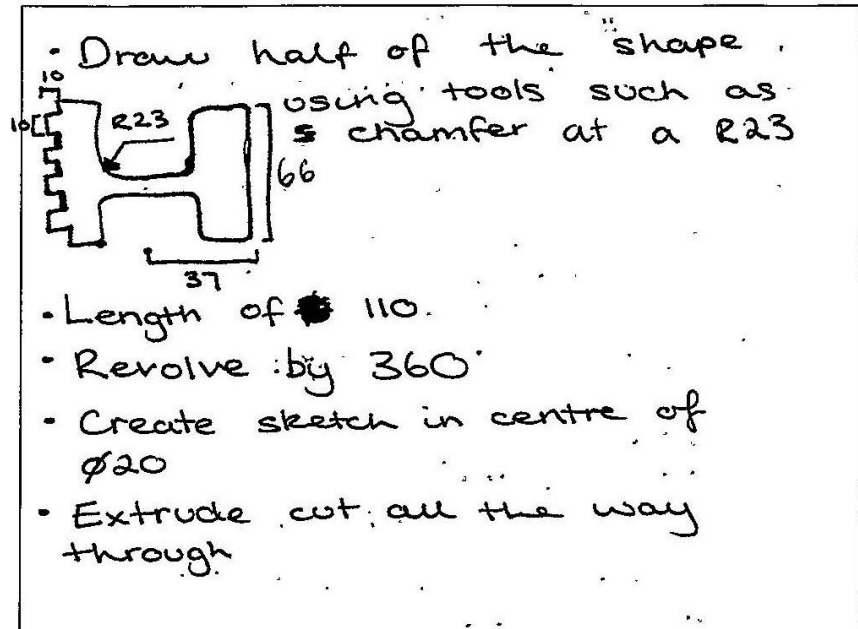 • Draw half of the shape.
10
using tools such as
10 R23
chamfer at a R23
66
37
• Length of 110.
• Revolve by 360°
• Create sketch in centre of
Ø20
• Extrude cut all the way
through